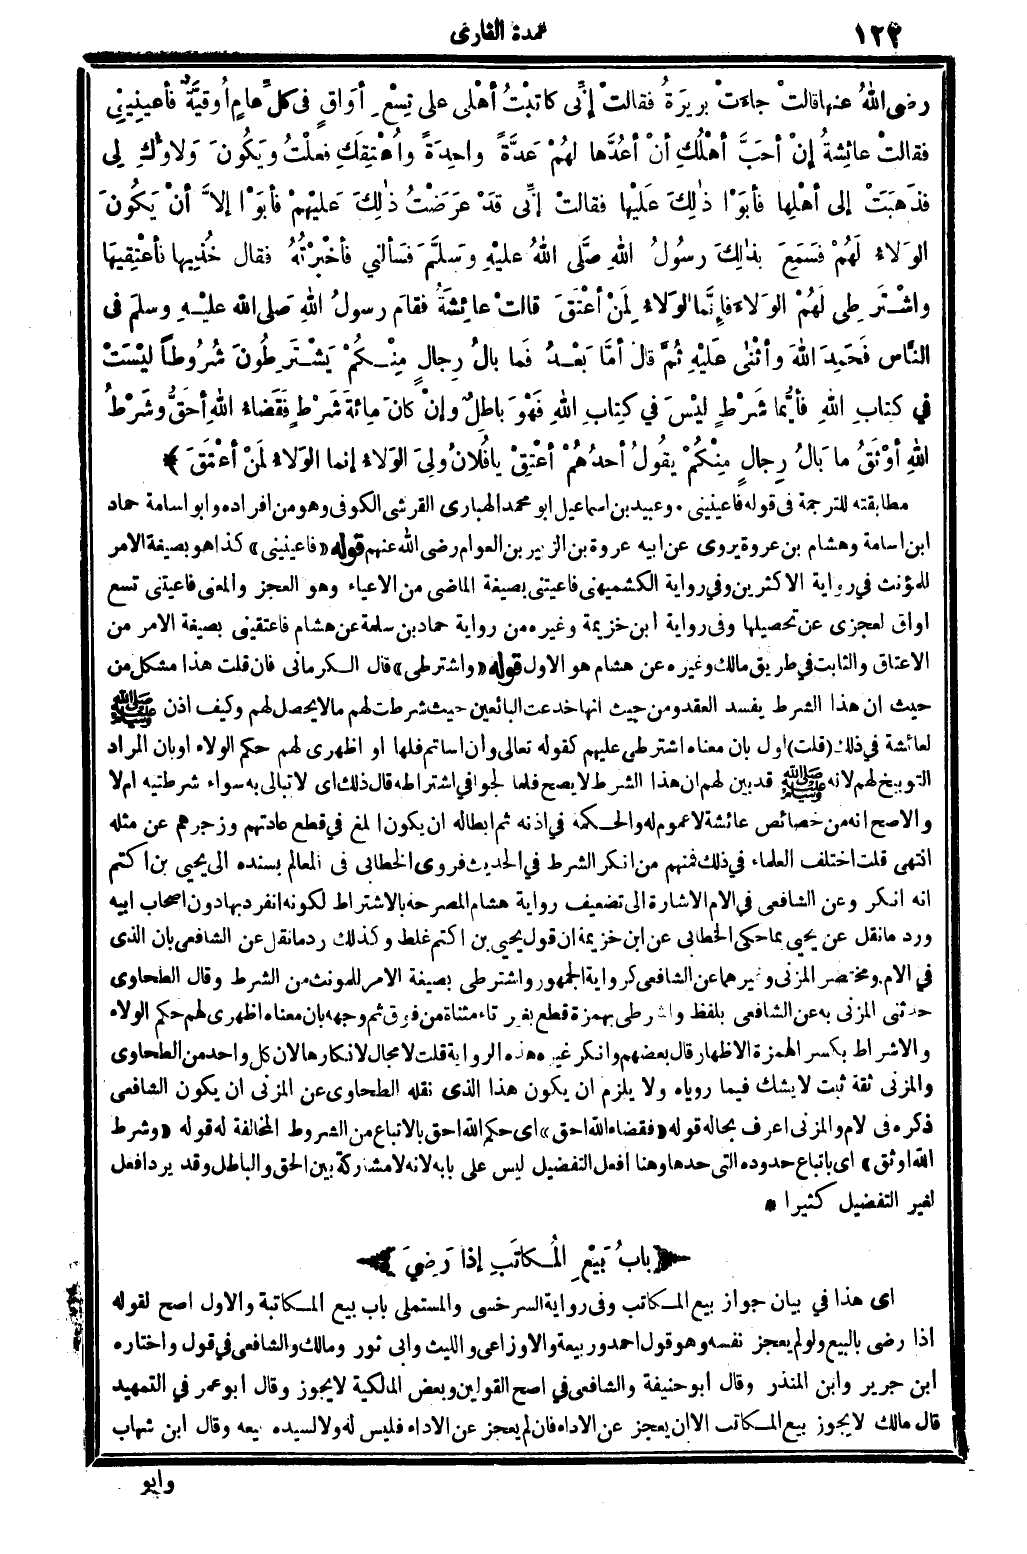 ١٢٢
عمدة القارى
رضى اللهُ عنها قالتْ جاءتْ بريرةُ فقالتْ إنِّى كاتبْتُ أهْلى على تِسْعِ أوَاقٍ فى كلِّ عامٍ أُوقِيَّةٌ فأعِينِينِى
فقالتْ عائِشةُ إنْ أحَبَّ أهْلُكِ أنْ أعُدَّها لهُمْ عَدَّةً واحِدَةً وأُعْتِقَكِ فعلْتُ ويَكُونَ وَلاؤُكِ لِى
فذَهبَتْ إلى أهْلِها فأبَوْا ذٰلِكَ عَلَيْها فقالتْ إنِّى قدْ عرَضْتُ ذٰلِكَ عَليْهِمْ فأبَوْا إلاَّ أنْ يَكُونَ
الوَلاءُ لَهُمْ فسَمِعَ بذٰلِكَ رسُولُ اللهِ صَلَّى اللهُ عليْهِ وَسَلَّمَ فَسَألَنِي فأخْبَرْتُهُ فقال خُذِيها فأعْتِقِيهَا
واشْـتَرِطِى لَهُمُ الوَلاءَ فإنَّما الوَلاءُ لِمَنْ أعْتَقَ قالتْ عائِشَةُ فقامَ رسولُ اللهِ صَلى الله عليْهِ وسلمَ فى
النَّاسِ فَحَمِدَ اللهَ وأثْنٰى عَلَيْهِ ثُمَّ قالَ أمَّا بَعْدُ فَما بالُ رِجالٍ مِنْـكُمْ يَشْـتَرِطُونَ شُرُوطاً لَيْسَتْ
في كِتابِ اللهِ فأيُّما شَرْطٍ لَيْسَ في كِتِابِ اللهِ فَهْوَ بَاطِلٌ وإنْ كانَ مِائةَ شَرْطٍ فَقَضاءُ اللهِ أحَقُّ وشَرْطُ
اللهِ أوْثَقُ ما بَالُ رِجالٍ مِنْكُمْ يقُولُ أحدُهُمْ أعْتِقْ يافُلانُ ولِىَ الوَلاءُ إنما الوَلاءُ لمَنْ أعْتَقَ ﴾
مطابقته للترجمة فى قوله فاعينينى. وعبيد بن اسماعيل ابو محمد الهبارى القرشى الكوفى وهو من افراده وابو اسامة حماد
ابن اسامة وهشام بن عروة يروى عن ابيه عروة بن الزبير بن العوام رضى الله عنهم قوله «فاعينينى» كذا هو بصيغة الامر
للمؤنث في رواية الاكثرين وفي رواية الكشميهنى فاعيتنى بصيغة الماضى من الاعياء وهو العجز والمعنى فاعيتنى تسع
اواق لعجزى عن تحصيلها وفى رواية ابن خزيمة وغيره من رواية حماد بن سلمة عن هشام فاعتقينى بصيغة الامر من
الاعتاق والثابت في طريق مالك وغيره عن هشام هو الاول قوله «واشترطى» قال الـكرمانى فان قلت هذا مشكل من
حيث ان هذا الشرط يفسد العقد ومن حيث انها خدعت البائعين حيث شرطت لهم مالا يحصل لهم وكيف اذن ﷺ
لعائشة في ذلك (قلت) اول بان معناه اشترطى عليهم كقوله تعالى وان اساتم فلها او اظهرى لهم حكم الولاء اوبان المراد
التوبيخ لهم لانه ﷺ قد بين لهم ان هذا الشرط لا يصح فلما لجوا في اشتراطه قال ذلك اى لا تبالى به سواء شرطتيه ام لا
والاصح انه من خصائص عائشة لا عموم له والحـكمة في اذنه ثم ابطاله ان يكون ابلغ في قطع عادتهم وزجرهم عن مثله
انتهى قلت اختلف العلماء في ذلك فمنهم من انكر الشرط في الحديث فروى الخطابى فى المعالم بسنده الى يحيى بن اكتم
انه انكر وعن الشافعى في الام الاشارة الى تضعيف رواية هشام المصرحة بالاشتراط لكونه انفرد بها دون اصحاب ابيه
ورد ما نقل عن يحيى بما حكى الخطابى عن ابن خزيمة ان قول يحيى بن اكتم غلط وكذلك رد ما نقل عن الشافعى بان الذى
في الام ومختصر المزنى وغيرهما عن الشافعى كرواية الجمهور واشترطى بصيغة الامر للمونث من الشرط وقال الطحاوى
حدثنى المزنى به عن الشافعى بلفظ واشرطى بهمزة قطع بغير تاء مثناة من فوق ثم وجهه بان معناه اظهرى لهم حكم الولاء
والاشراط بكسر الهمزة الاظهار قال بعضهم وانكر غيره هذه الرواية قلت لا مجال لانكارها لان كل واحد من الطحاوى
والمزنى ثقة ثبت لا يشك فيما روياه ولا يلزم ان يكون هذا الذى نقله الطحاوى عن المزنى ان يكون الشافعى
ذكره فى لام والمزنى اعرف بحاله قوله «فقضاء الله احق» اى حكم الله احق بالاتباع من الشروط المخالفة له قوله «وشرط
الله اوثق» اى باتباع حدوده التى حدها وهنا افعل التفضيل ليس على بابه لانه لا مشاركة بين الحق والباطل وقد يرد افعل
لغير التفضيل كثيرا *
﴿ بابُ بَيْعِ المُـكاتَبِ إذا رَضِيَ ﴾
اى هذا في بيان جواز بيع المـكاتب وفى رواية السرخسى والمستملى باب بيع المـكاتبة والاول اصح لقوله
اذا رضى بالبيع ولو لم يعجز نفسه وهو قول احمد وربيعة والاوزاعى والليث وابى ثور ومالك والشافعى في قول واختاره
ابن جرير وابن المنذر وقال ابو حنيفة والشافعى في اصح القولين وبعض المالكية لا يجوز وقال ابو عمر في التمهيد
قال مالك لا يجوز بيع المـكاتب الا ان يعجز عن الاداء فان لم يعجز عن الاداء فليس له ولا لسيده بيعه وقال ابن شهاب
وابو